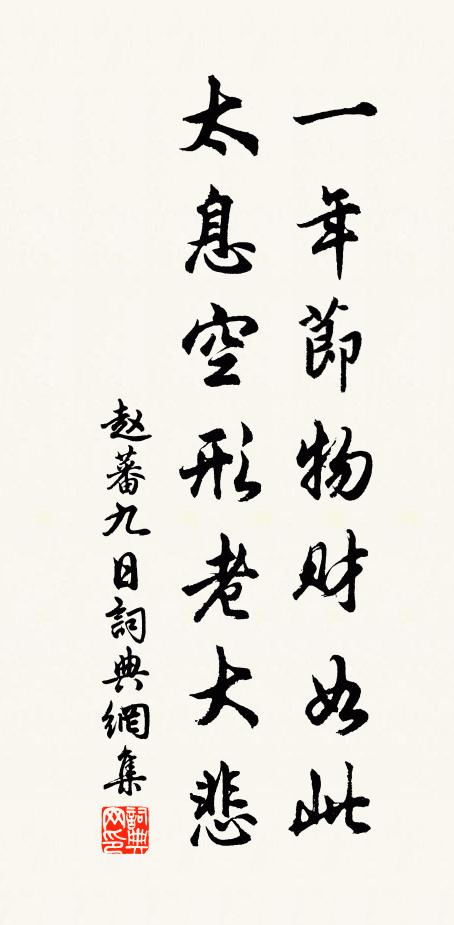 一年節物财如此
太息空形老大悲
赵蕃九日詞典網集
詞典网印